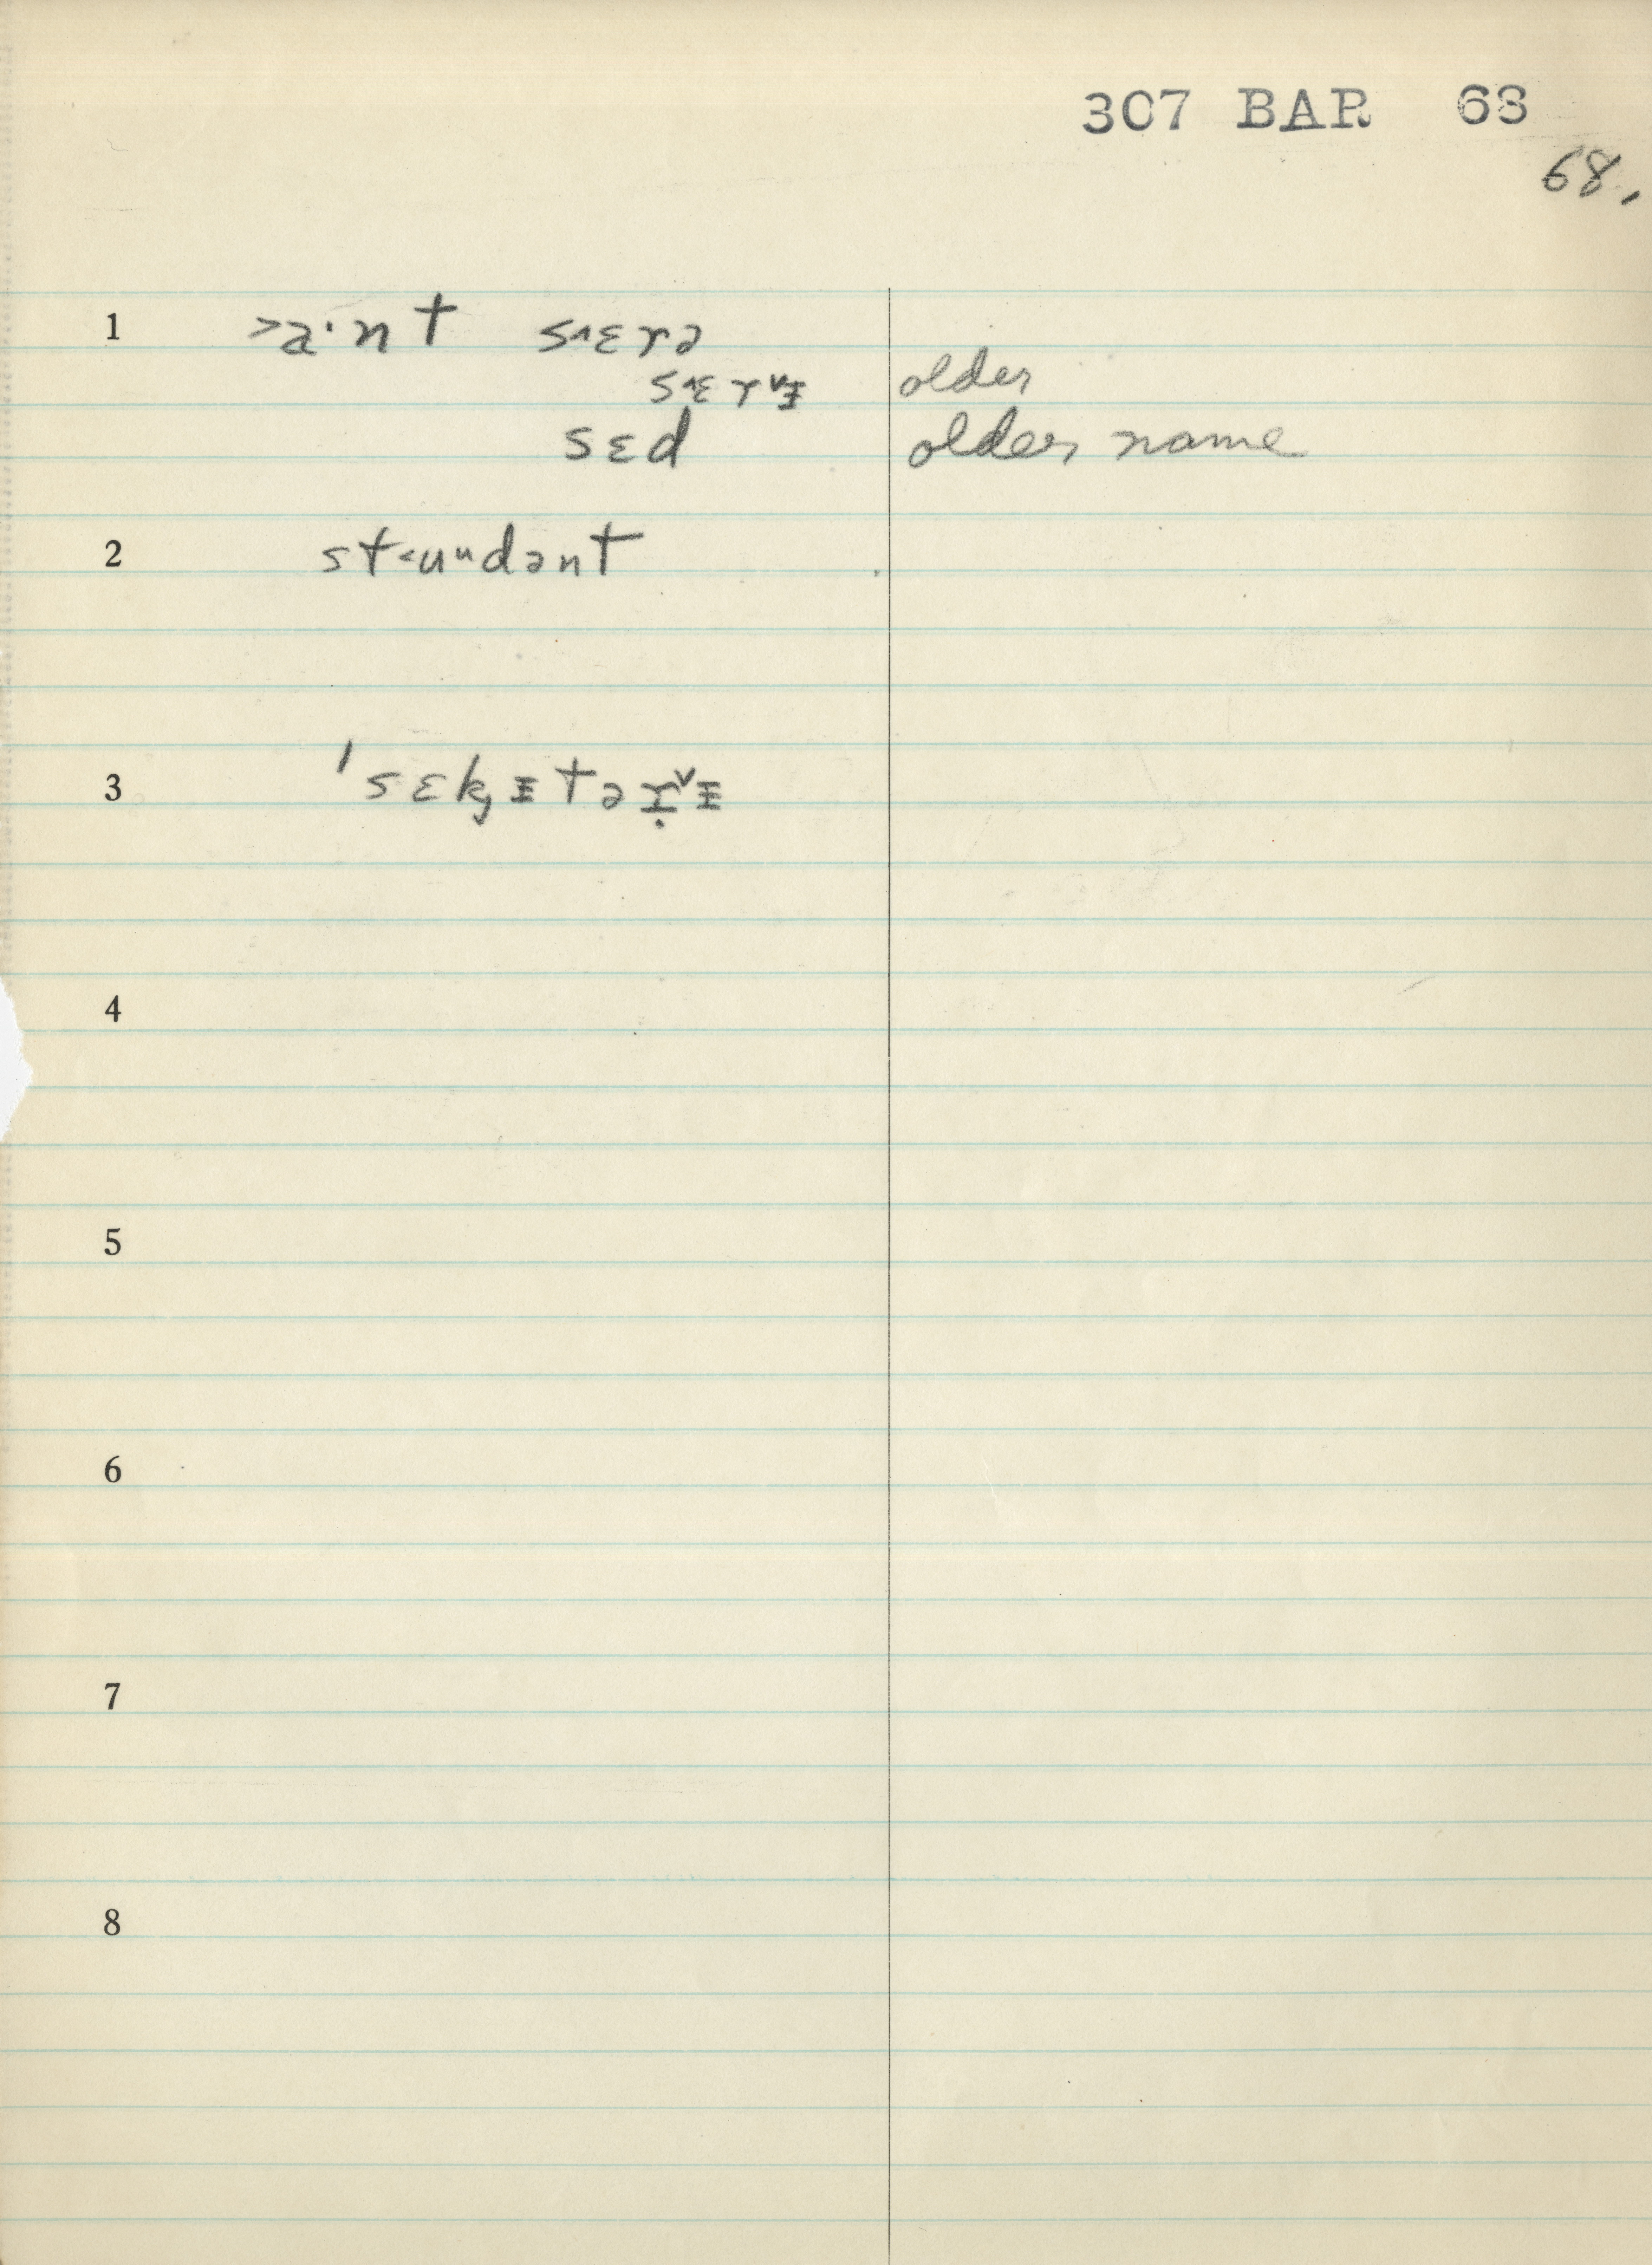 307 BAR 68
68.
1 >a·nt s˄ɛrə
s˄ɛr˅ɪ older
sɛd older name
2 st˂uᵘdənt
3 ˈsɛkɪtər˅ɪ
4
5
6
7
8